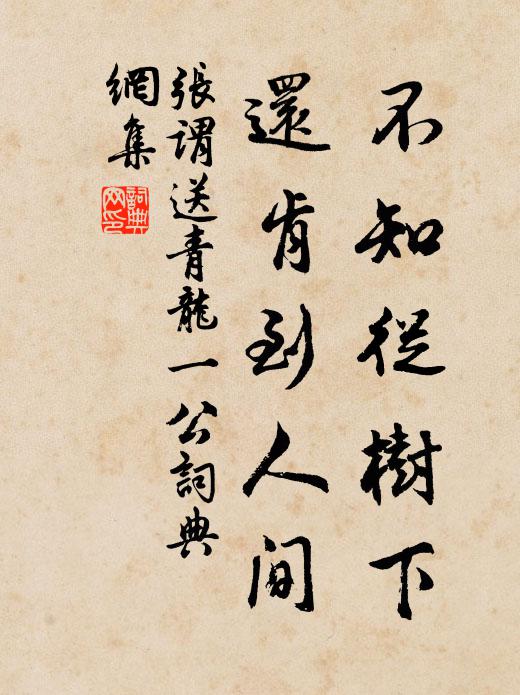 不知從樹下
還肯到人間
張謂送青龍一公詞典
網集
詞典
网印